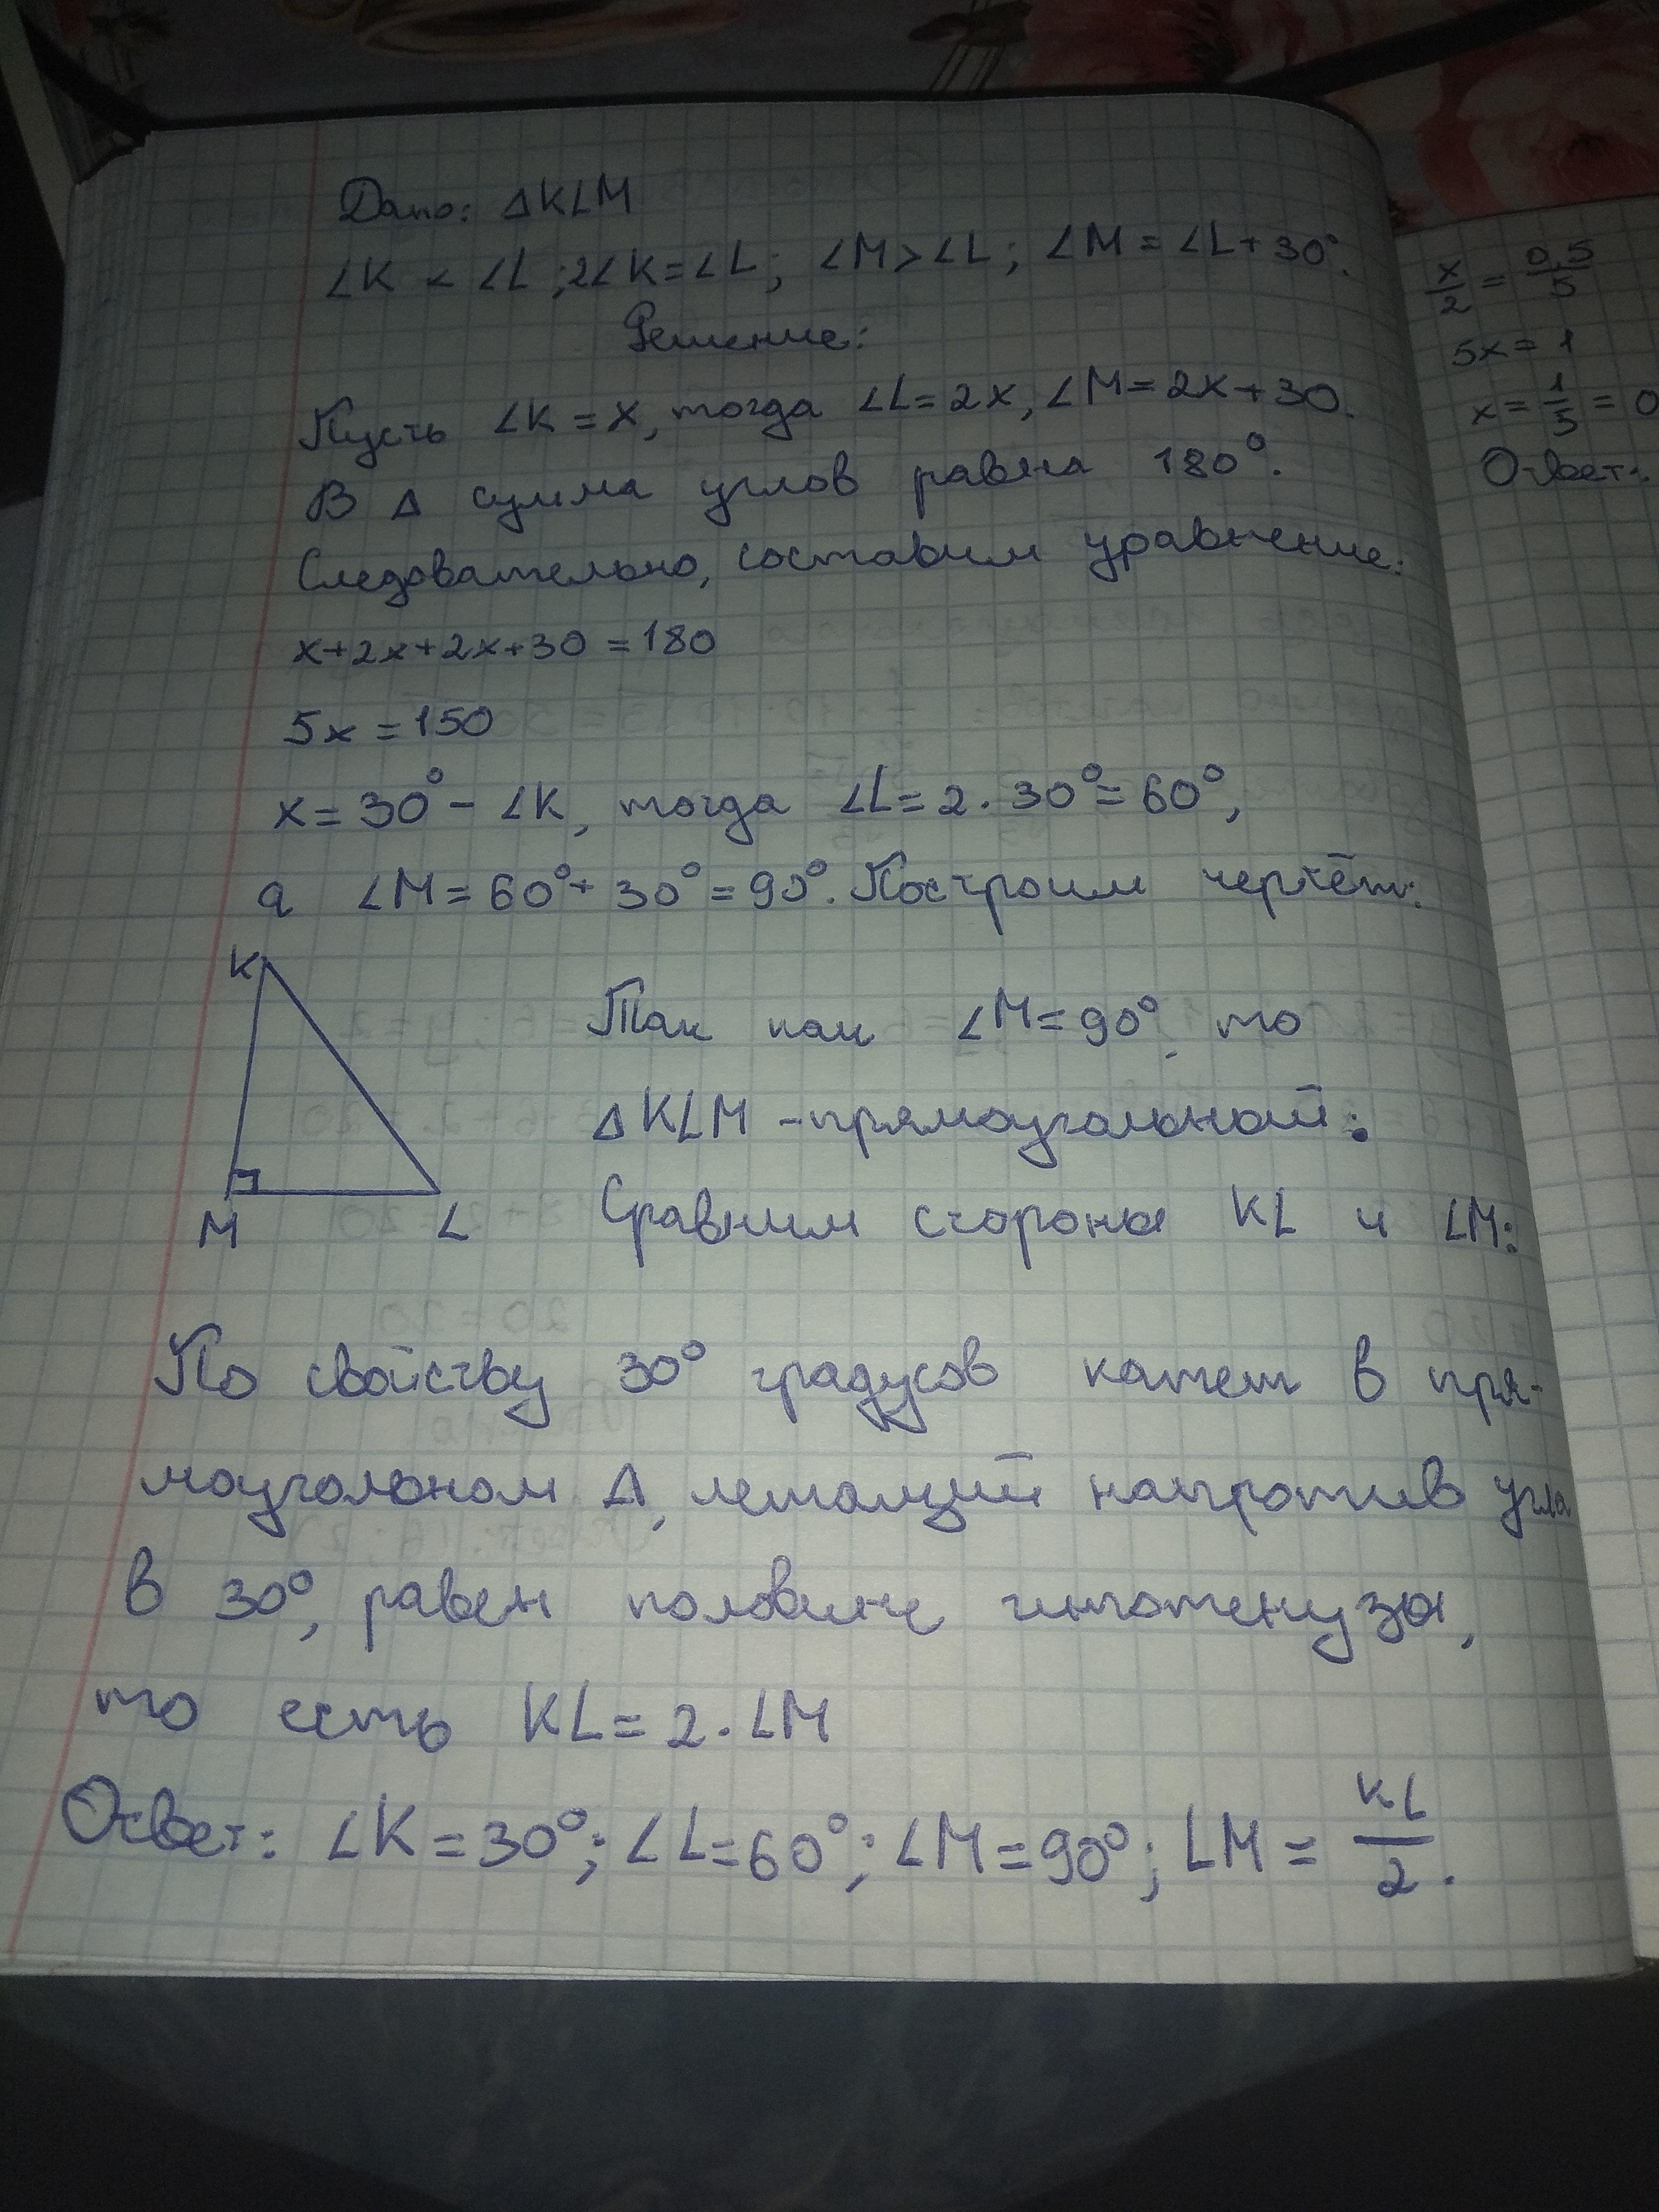 Дано: ΔKLM
∠K < ∠L; 2∠K=∠L; ∠M>∠L; ∠M=∠L+30°.
Решение:
Пусть ∠K=x, тогда ∠L=2x, ∠M=2x+30.
В Δ сумма углов равна 180°.
Следовательно, составим уравнение:
x+2x+2x+30=180
5x=150
x=30° - ∠K, тогда ∠L=2·30°=60°,
а ∠M=60°+30°=90°. Построим чертёж:
K
M L
Так как ∠M=90°, то
ΔKLM - прямоугольный:
Сравним стороны KL и LM:
По свойству 30° градусов катет в пря-
моугольном Δ, лежащий напротив угла
в 30°, равен половине гипотенузы,
то есть KL=2·LM
Ответ: ∠K=30°; ∠L=60°; ∠M=90°; LM = KL/2.
x/2 = 0,5/5
5x=1
x=1/5=0
Ответ: